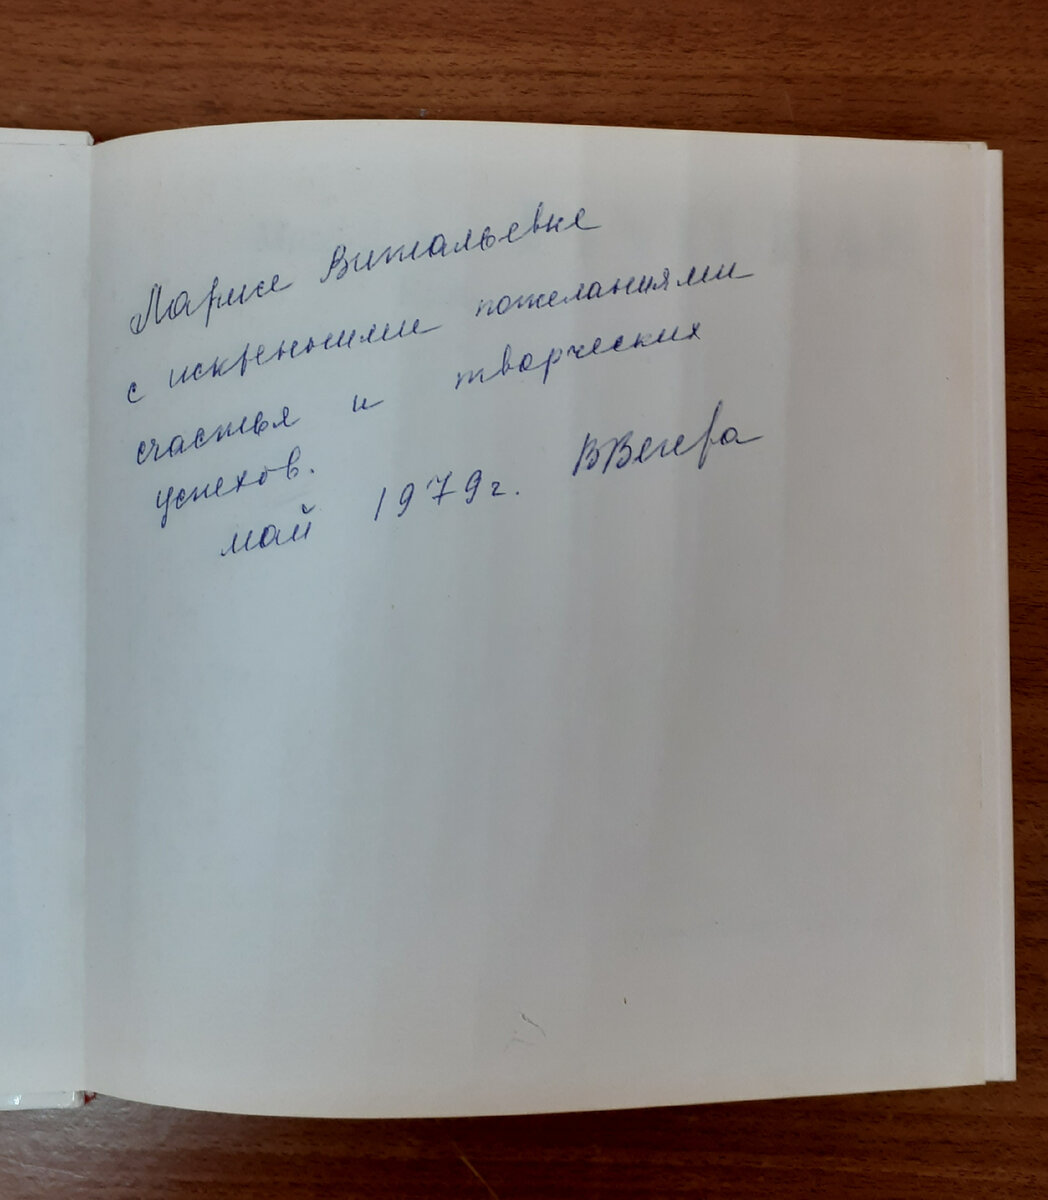 Ларисе Витальевне
с искренними пожеланиями
счастья и творческих
успехов.
май 1979г.